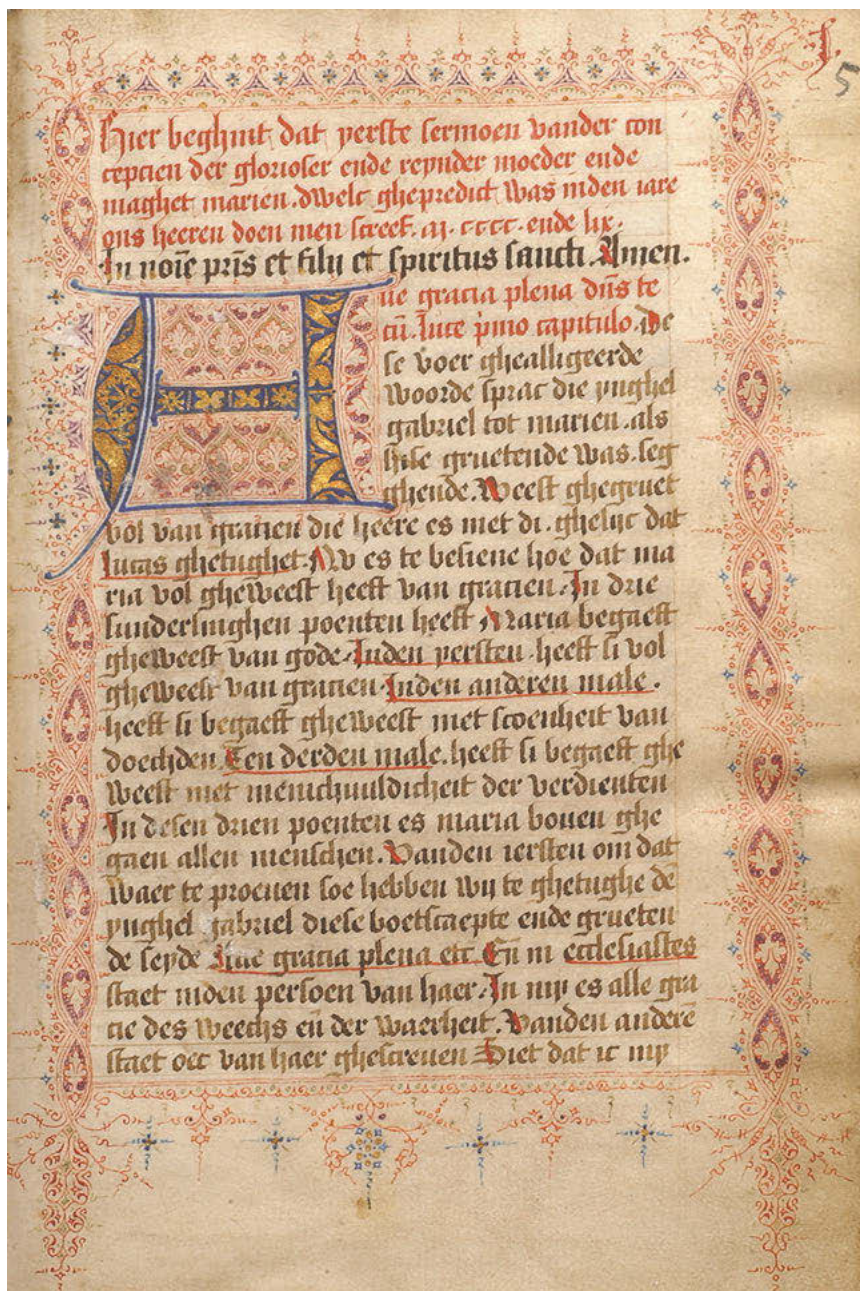 J.
5
Hier beghint dat yerste sermoen vander con
cepcien der glorioser ende reynder moeder ende
maghet marien. dwelc ghepredict was inden iare
ons heeren doen men screef. m. cccc. ende lix.
In noīe pr̄is et filij et spiritus sancti. Amen.
Aue gracia plena dn̄s te
cū. Luce p̄mo capitulo. De
se voer ghealligeerde
woorde sprac die ynghel
gabriel tot marien. als
hise gruetende was. seg
ghende. Weest ghegruet
vol van gracien die heere es met di. ghelijc dat
lucas ghetughet. Nv es te besiene hoe dat ma
ria vol gheweest heeft van gracien. In drie
sunderlinghen poenten heeft Maria begaeft
gheweest van gode. Inden yersten. heeft si vol
gheweest van gracien. Inden anderen male.
heeft si begaeft gheweest met scoenheit van
doechden. Ten derden male. heeft si begaeft ghe
weest met menichuuldicheit der verdienten
In desen drien poenten es maria bouen ghe
gaen allen menschen. Vanden iersten om dat
waer te proeuen soe hebben wij te ghetughe dē
ynghel gabriel diese boetscaepte ende grueten
de seyde Aue gracia plena etc. En̄ in ecclesiastes
staet inden persoen van haer. In mij es alle gra
cie des weechs en̄ der waerheit. Vanden anderē
staet oec van haer ghescreuen Siet dat ic mij